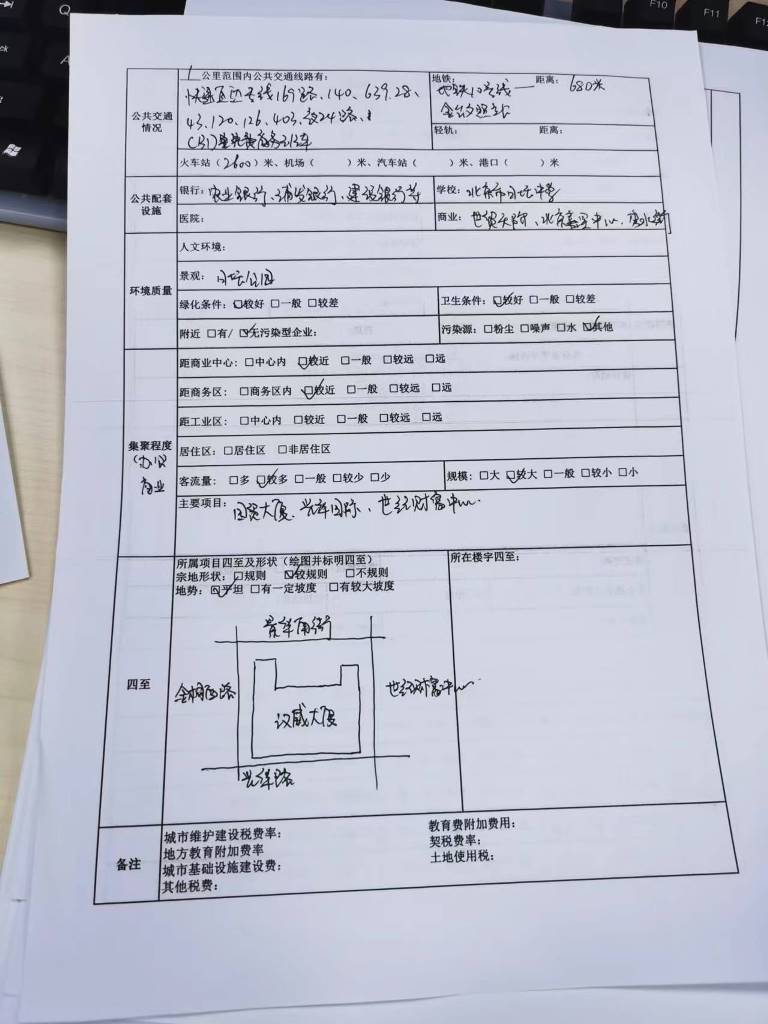 Q
F10
F11
公共交通情况
1公里范围内公共交通线路有:
快速直达专线169路、140、639、28、
43、120、126、403、夜24路、
地铁: 地铁10号线—
距离: 680米
金台夕照站
轻轨: 距离:
火车站(2600)米、机场( )米、汽车站( )米、港口( )米
公共配套设施
银行: 农业银行、浦发银行、建设银行等
学校: 北京市日坛中学
医院:
商业: 世贸天阶、北京嘉里中心、
环境质量
人文环境:
景观: 日坛公园
绿化条件: ☑较好 □一般 □较差
卫生条件: ☑较好 □一般 □较差
附近 □有/ ☑无污染型企业:
污染源: □粉尘 □噪声 □水 ☑其他
集聚程度
(办公)
商业
距商业中心: □中心内 ☑较近 □一般 □较远 □远
距商务区: □商务区内 ☑较近 □一般 □较远 □远
距工业区: □中心内 □较近 □一般 □较远 □远
居住区: □居住区 □非居住区
客流量: □多 ☑较多 □一般 □较少 □少
规模: □大 ☑较大 □一般 □较小 □小
主要项目: 国贸大厦、光华国际、世纪财富中心
四至
所属项目四至及形状(绘图并标明四至)
宗地形状: □规则 ☑较规则 □不规则
地势: ☑平坦 □有一定坡度 □有较大坡度
所在楼宇四至:
景华南街
金桐西路
汉威大厦
世纪财富中心
光华路
备注
城市维护建设税费率:
教育费附加费用:
地方教育附加费率
契税费率:
城市基础设施建设费:
土地使用税:
其他税费: